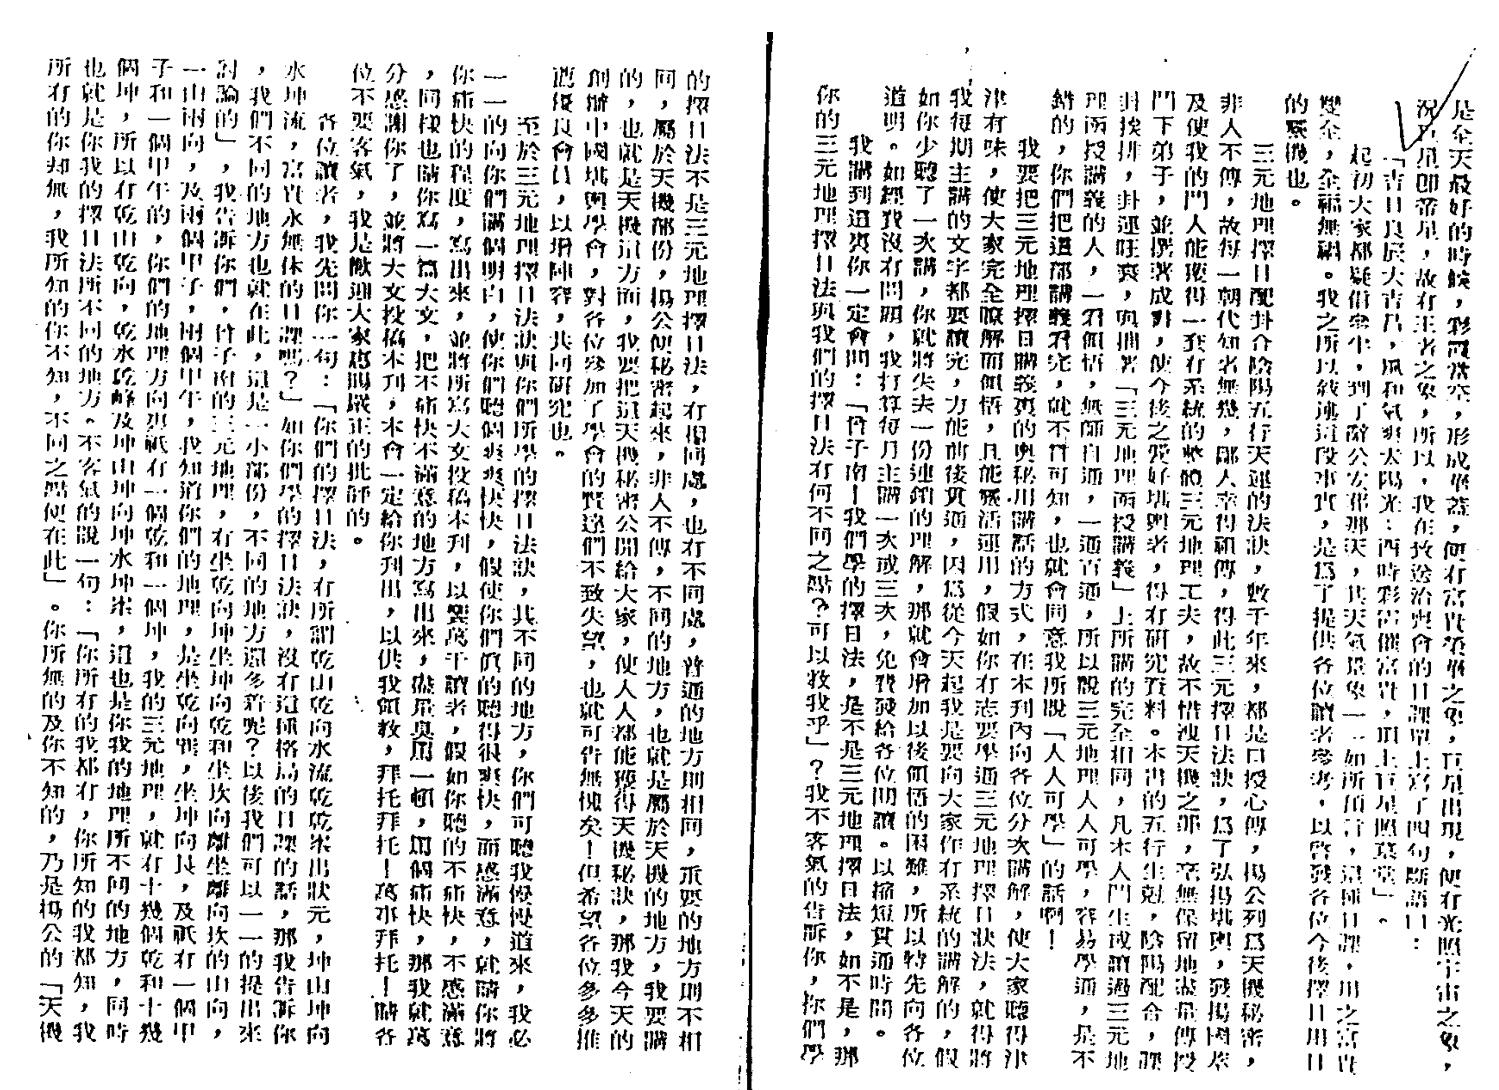 是全天最好的時候，彩霞當空，形成華蓋，便有富貴榮華之象，五星出現，便有光照宇宙之象，
況五星即帝星，故有王者之象，所以，我在按送治喪會的日課單上寫了四句斷語曰：
「吉日良辰大吉昌，風和氣爽太陽光；酉時彩雲催富貴，頂上五星照墓堂」。
起初大家都疑信參半，到了辭公安葬那天，其天氣景象一一如所預言，這種日課，用之富貴
雙全，全福無禍。我之所以敍述這段事實，是爲了提供各位讀者參考，以啓發各位今後擇日用日
的緊機也。
三元地理擇日配卦合陰陽五行天運的法訣，數千年來，都是口授心傳，楊公列爲天機秘密，
非人不傳，故每一朝代知者無幾，鄙人幸得祖傳，得此三元擇日法訣，爲了弘揚堪輿，發揚國萃
及使我的門人能獲得一套有系統的整體三元地理工夫，故不惜洩天機之罪，毫無保留地盡量傳授
門下弟子，並撰著成書，使今後之愛好堪輿者，得有研究資料。本書的五行生尅，陰陽配合，課
卦挨排，卦運旺衰，與拙著「三元地理面授講義」上所講的完全相同，凡本人門生或讀過三元地
理面授講義的人，一看領悟，無師自通，一通百通，所以說三元地理人人可學，容易學通，是不
錯的，你們把這部講義看完，就不待可知，也就會同意我所說「人人可學」的話啊！
我要把三元地理擇日講義裏的奧秘用講話的方式，在本刊內向各位分次講解，使大家聽得津
津有味，使大家完全瞭解而領悟，且能靈活運用，假如你有志要學通三元地理擇日訣法，就得將
我每期主講的文字都要讀完，方能前後貫通，因爲從今天起我是要向大家作有系統的講解的，假
如你少聽了一次講，你就將失去一份連鎖的理解，那就會增加以後領悟的困難，所以特先向各位
道明。如經費沒有問題，我打算每月主講一次或三次，免費發給各位閱讀。以縮短貫通時間。
我講到這裏你一定會問：「曾子南！我們學的擇日法，是不是三元地理擇日法，如不是，那
你的三元地理擇日法與我們的擇日法有何不同之點？可以教我乎」？我不客氣的告訴你，你們學
的擇日法不是三元地理擇日法，有相同處，也有不同處，普通的地方則相同，重要的地方則不相
同，屬於天機部份，楊公便秘密起來，非人不傳，不同的地方，也就是屬於天機的地方，我要講
的，也就是天機這方面，我要把這天機秘密公開給大家，使人人都能獲得天機秘訣，那我今天的
創辦中國堪輿學會，對各位參加了學會的賢達們不致失望，也就可告無愧矣！但希望各位多多推
薦優良會員，以增陣容，共同研究也。
至於三元地理擇日法訣與你們所學的擇日法訣，其不同的地方，你們可聽我慢慢道來，我必
一一的向你們講個明白，使你們聽個爽爽快快，假使你們眞的聽得很爽快，而感滿意，就請你將
你痛快的程度，寫出來，並將所寫大文投稿本刊，以饗萬千讀者，假如你聽的不痛快，不感滿意
，同樣也請你寫一篇大文，把不痛快不滿意的地方寫出來，盡量臭罵一頓，罵個痛快，那我就萬
分感謝你了，並將大文投稿本刊，本會一定給你刊出，以供我領教，拜托拜托！萬事拜托！請各
位不要客氣，我是歡迎大家惠賜嚴正的批評的。
各位讀者，我先問你一句：「你們的擇日法，有所謂乾山乾向水流乾乾峯出狀元，坤山坤向
水坤流，富貴永無休的日課嗎？」如你們學的擇日法訣，沒有這種格局的日課的話，那我告訴你
，我們不同的地方也就在此，這是一小部份，不同的地方還多着呢？以後我們可以一一的提出來
討論的」，我告訴你們，曾子南的三元地理，有坐乾向坤坐坤向乾和坐坎向離坐離向坎的山向，
一山兩向，及兩個甲子，兩個甲午，我知道你們的地理，是坐乾向巽，坐坤向艮，及祇有一個甲
子和一個甲午的，你們的地理方向裏祇有一個乾和一個坤，我的三元地理，就有十幾個乾和十幾
個坤，所以有乾山乾向，乾水乾峰及坤山坤向坤水坤峯，這也是你我的地理所不同的地方，同時
也就是你我的擇日法所不同的地方。不客氣的說一句：「你所有的我都有，你所知的我都知，我
所有的你却無，我所知的你不知，不同之點便在此」。你所無的及你不知的，乃是楊公的「天機